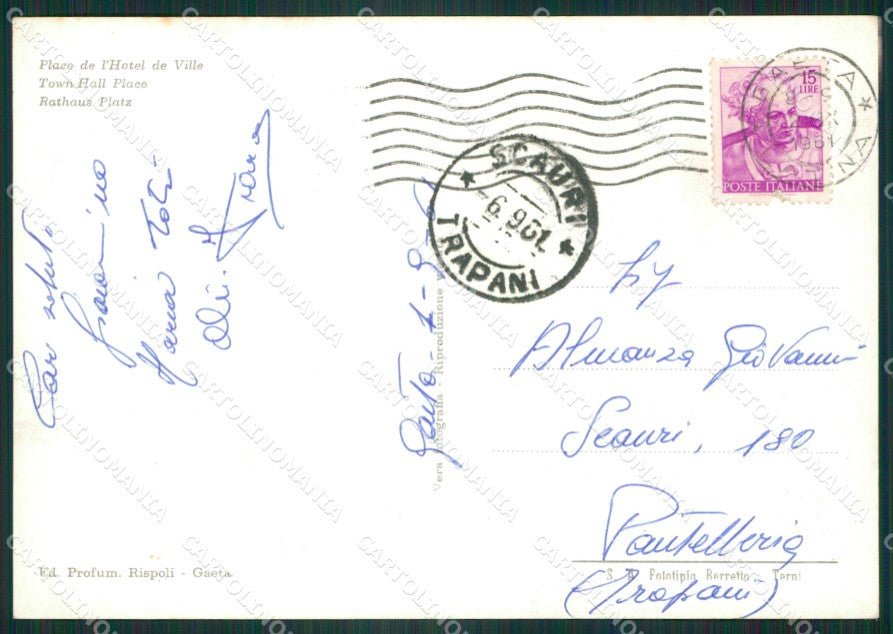 Place de l'Hotel de Ville
Town Hall Place
Rathaus Platz
Cari saluti
Giovannino
Maria
Gaeta - 1-9-
Ed. Profum. Rispoli - Gaeta
Vera Fotografia - Riproduzione
SCAURI
6.9.61.
TRAPANI
GAETA
1961
15
LIRE
POSTE ITALIANE
Almanza Giovanni
Scauri, 180
Pantelleria
(Trapani)
S. A. Fototipia Berretta - Terni
CARTOLINOMANIA